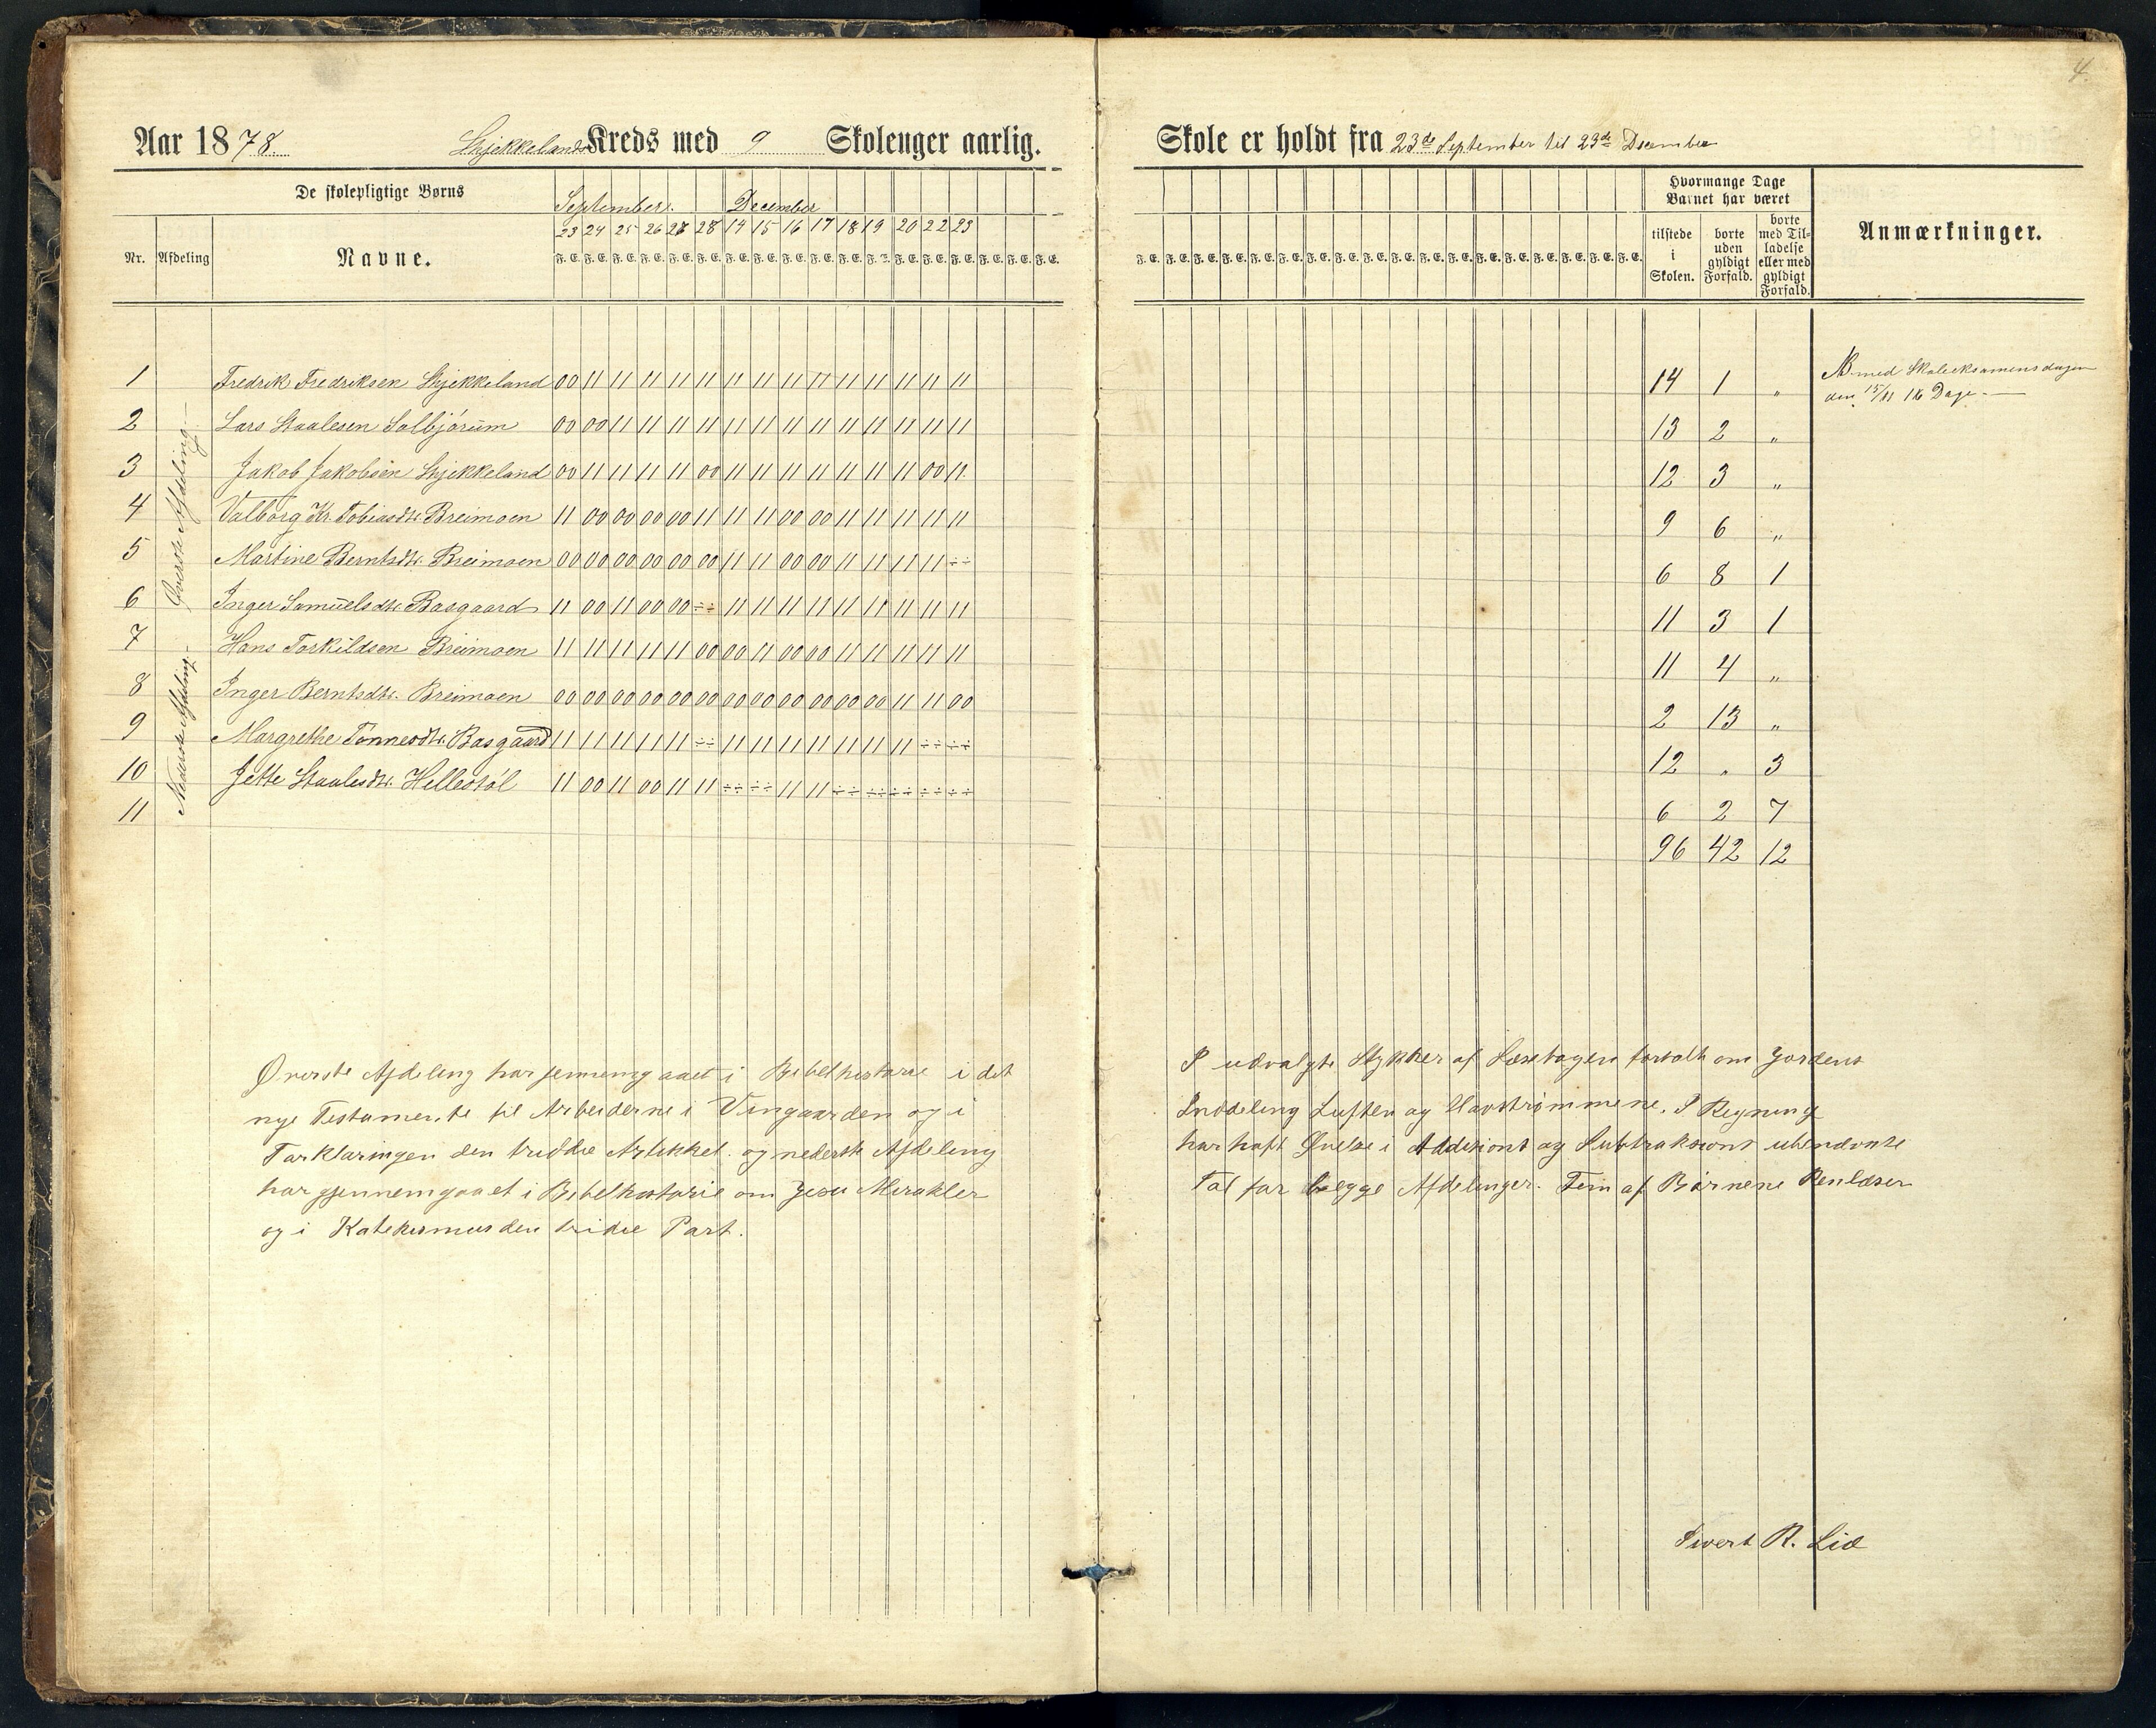 4.
Aar 1878. Skjekkelands Kreds med 9 Skoleuger aarlig.
Skole er holdt fra 23de September til 23de December
De skolepligtige Børns
September. December
23 24 25 26 27 28 14 15 16 17 18 19 20 22 23
Nr. Afdeling Navne. F. E. F. E. F. E. F. E. F. E. F. E. F. E. F. E. F. E. F. E. F. E. F. E. F. E. F. E. F. E. F. E. F. E. F. E.
F. E. F. E. F. E. F. E. F. E. F. E. F. E. F. E. F. E. F. E. F. E. F. E. F. E. F. E. F. E. F. E. F. E. F. E.
Hvormange Dage
Barnet har været
tilstede i Skolen.
borte uden gyldigt Forfald.
borte med Tilladelse eller med gyldigt Forfald.
Anmærkninger.
Øverste Afdeling.
Nederste Afdeling.
1 Fredrik Fredriksen Skjekkeland 00 11 11 11 11 11 11 11 11 11 11 11 11 11 11 14 1 "
NB med Skoleeksamensdagen
den 15/11 16 Dage.
2 Lars Staalesen Solbjørum 00 00 11 11 11 11 11 11 11 11 11 11 11 11 11 13 2 "
3 Jakob Jakobsen Skjekkeland 00 11 11 11 11 00 11 11 11 11 11 11 11 00 11 12 3 "
4 Valborg Kr. Tobiasdtr. Breimoen 11 00 00 00 00 11 11 11 00 00 11 11 11 11 11 9 6 "
5 Martine Berntsdtr. Breimoen 00 00 00 00 00 00 11 11 00 00 11 11 11 11 ÷÷ 6 8 1
6 Inger Samuelsdtr. Basgaard 11 00 11 00 00 ÷÷ 11 11 11 11 11 11 11 11 11 11 3 1
7 Hans Torkildsen Breimoen 11 11 11 11 11 00 00 11 00 00 11 11 11 11 11 11 4 "
8 Inger Berntsdtr. Breimoen 00 00 00 00 00 00 00 00 00 00 00 00 11 11 00 2 13 "
9 Margrethe Tønnesdtr. Basgaard 11 11 11 11 11 ÷÷ 11 11 11 11 11 11 11 ÷÷ ÷÷ 12 " 3
10 Jette Staalesdtr. Hellestøl 11 00 11 00 11 11 ÷÷ ÷÷ 11 11 ÷÷ ÷÷ ÷÷ ÷÷ ÷÷ 6 2 7
11 96 42 12
Øverste Afdeling har jennemgaaet i Bibelhistorie i det
nye Testamente til Arbeiderne i Vingaarden og i
Forklaringen den tredie Artikkel. og nederste Afdeling
har gjennemgaaet i Bibelhistorie om Jesu Mirakler
og i Katekismus den tridie Part.
I udvalgte Stykker af Læsebogen fortalt om Jordens
Inddeling Luften og Havstrømmene. I Regning
har haft Øvelse i Addisions og Subtraksions ubenævnte
Tal for begge Afdelinger. Fem af Børnene Renlæser
Sivert R. Lid